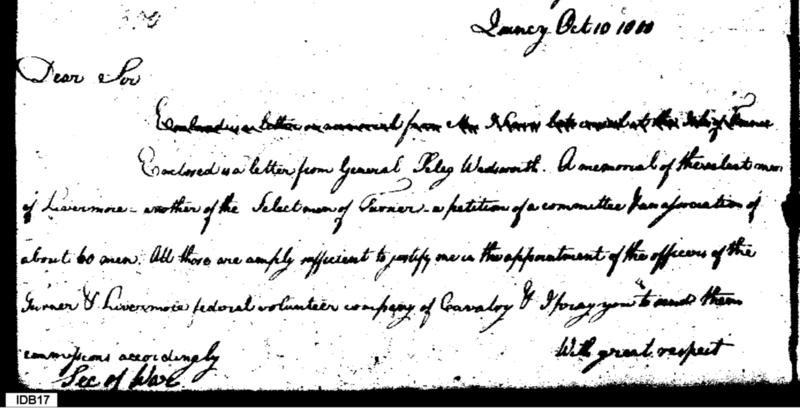 Quincy Oct 10 1800
Dear Sir
Enclosed is a letter from
Enclosed is a letter from General Peleg Wadsworth. A memorial of the select men
of Livermore - another of the Selectmen of Turner - a petition of a committee & an association of
about 60 men. All those are amply sufficient to justify me in the appointment of the officers of the
Turner & Livermore federal volunteer company of Cavalry & I pray you to send them
commissions accordingly
With great respect
Sec of War
IDB17